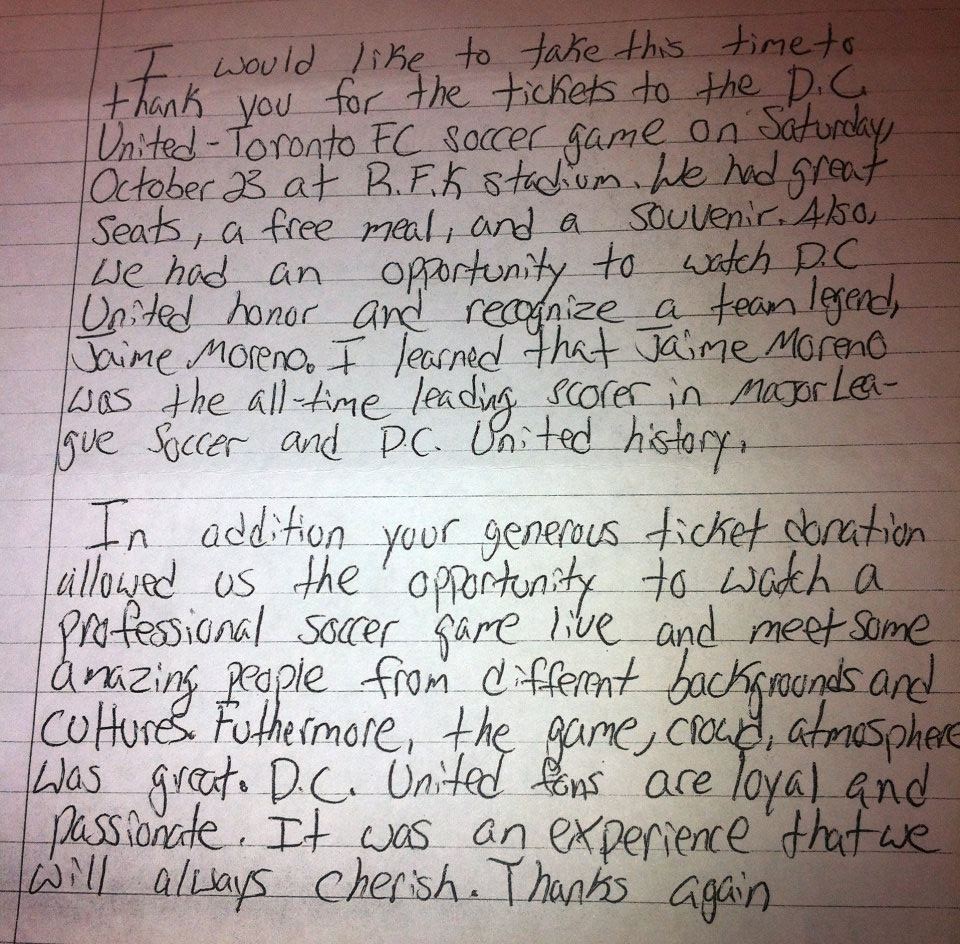 I would like to take this time to
thank you for the tickets to the D.C.
United-Toronto FC soccer game on Saturday,
October 23 at R.F.K stadium. We had great
seats, a free meal, and a souvenir. Also,
we had an opportunity to watch D.C
United honor and recognize a team legend,
Jaime Moreno. I learned that Jaime Moreno
was the all-time leading scorer in Major Lea-
gue Soccer and D.C. United history.
In addition your generous ticket donation
allowed us the opportunity to watch a
professional soccer game live and meet some
amazing people from different backgrounds and
cultures. Futhermore, the game, crowd, atmosphere
was great. D.C. United fans are loyal and
passionate. It was an experience that we
will always cherish. Thanks again